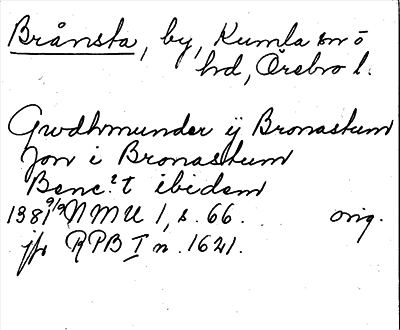 Brånsta, by, Kumla sn o
hd, Örebro l.
Gwdhmunder ij Bronastum
Jon i Bronastum
Benc?t ibidem
1381 9/9 NMU 1, s. 66. orig.
jfr RPB I n. 1621.